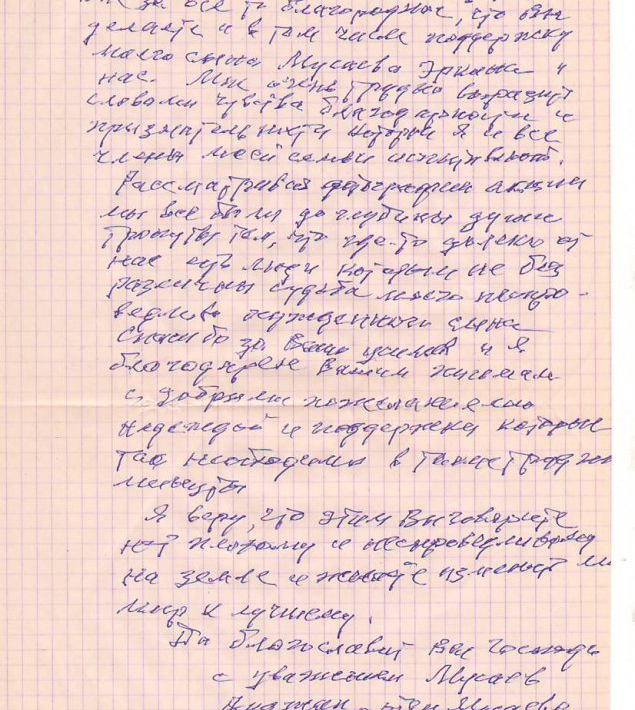 за все то благородное, что вы
делаете и в том числе поддержку
моего сына Мусаева Эркина и
нас. Мне очень трудно выразить
словами чувства благодарности и
признательности которые я и все
члены моей семьи испытывают.
Рассматривая фотографии акции
мы все были до глубины души
тронуты тем, что где-то далеко от
нас есть люди которым не без
различны судьба моего неспра-
ведливо осужденного сына
Спасибо за Ваши усилия и я
благодарен Вашим письмам
с добрыми пожеланиями
надеждой и поддержки которые
так необходимы в такие трудн
минуты
Я верю, что этим Вы говорите
нет плохому и несправедливому
на земле и хотите изменит
мир к лучшему.
Да благословит Вас Господь
с уважением Мусаев
Мусаева